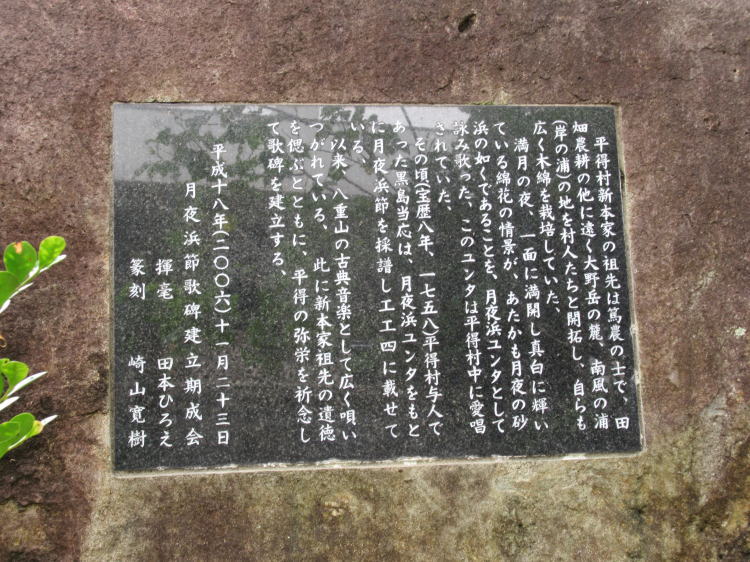 平得村新本家の祖先は篤農の士で、田
畑農耕の他に遠く大野岳の麓、南風の浦
(岸の浦)の地を村人たちと開拓し、自らも
広く木綿を栽培していた、
満月の夜、一面に満開し真白に輝い
ている綿花の情景が、あたかも月夜の砂
浜の如くであることを、月夜浜ユンタとして
詠み歌った、このユンタは平得村中に愛唱
されていた、
その頃(宝歴八年、一七五八)平得村与人で
あった黒島当応は、月夜浜ユンタをもと
に月夜浜節を採譜し工工四に載せて
いる、
以来、八重山の古典音楽として広く唄い
つがれている、此に新本家祖先の遺徳
を偲ぶとともに、平得の弥栄を祈念し
て歌碑を建立する、
平成十八年(二〇〇六)十一月二十三日
月夜浜節歌碑建立期成会
揮毫 田本ひろえ
篆刻 崎山寛樹